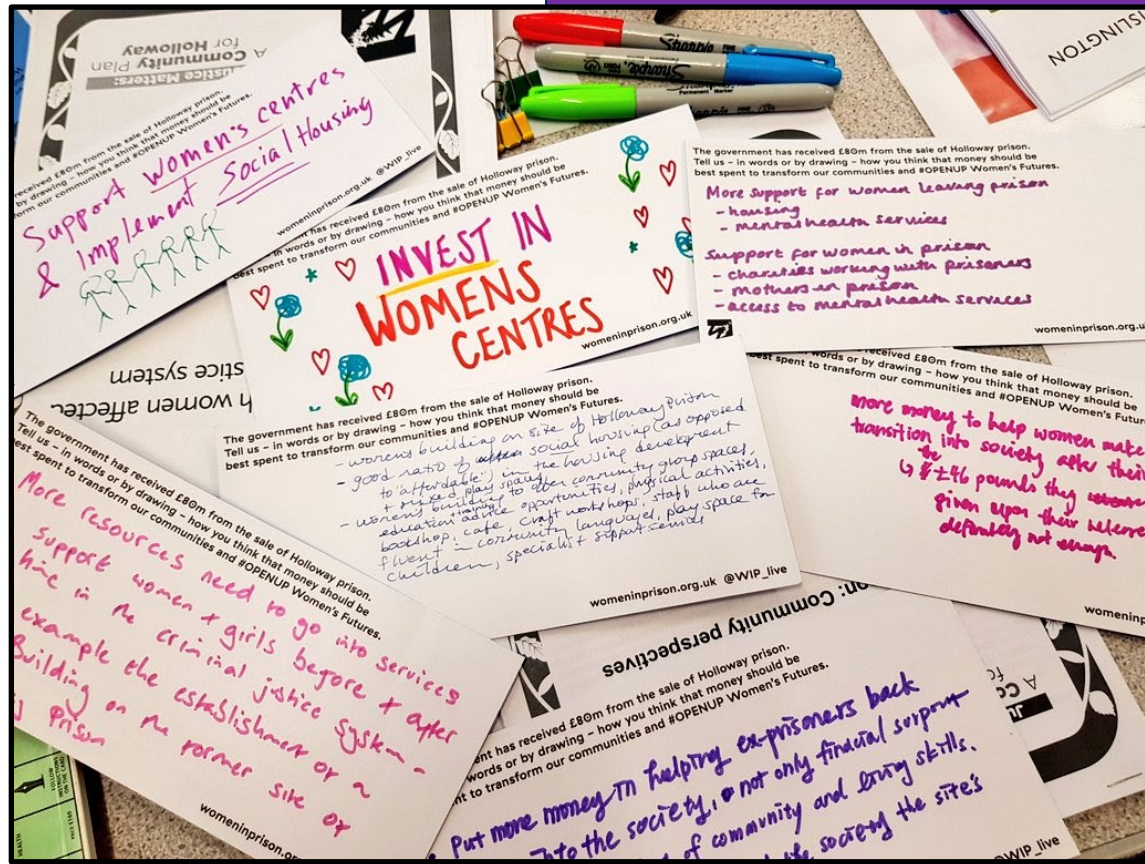 ISLINGTON
Sharpie FINE
Sharpie
Permanent Marker
Justice Matters:
A Community Plan
for Holloway
received £80m from the sale of Holloway prison.
by drawing – how you think that money should be
form our communities and #OPENUP Women's Futures.
Support women's centres
& implement Social Housing
womeninprison.org.uk @WIP_live
has received £80m from the sale of Holloway prison.
in words or by drawing – how you think that money should be
best spent to transform our communities and #OPENUP Women's Futures.
INVEST IN
WOMENS
CENTRES
womeninprison.org.uk
The government has received £80m from the sale of Holloway prison.
Tell us – in words or by drawing – how you think that money should be
best spent to transform our communities and #OPENUP Women's Futures.
More support for women leaving prison
- housing
- mental health services
Support for women in prison
- charities working with prisoners
- mothers in prison
- access to mental health services
womeninprison.org.u
h women affected
stice system
The government has received £80m from the sale of Holloway prison.
Tell us – in words or by drawing – how you think that money should be
best spent to transform our communities and #OPENUP Women's Futures.
- womens building on site of Holloway Prison
- good ratio of social housing (as opposed
to 'affordable') in the housing development
+ mixed, play spaces
- women's building to offer community group spaces,
education/advice opportunities, physical activities,
bookshop, cafe, craft workshops, staff who are
fluent in community languages, play space for
children, specialist support services
womeninprison.org.uk @WIP_live
received £80m from the sale of Holloway prison.
words or by drawing – how you think that money should be
best spent to transform our communities and #OPENUP Women's Futu
more money to help women make
transition into society after their
the
↳ £46 pounds they
given upon their release
definitely not enough.
womeninp
The government has received £80m from the sale of Holloway prison.
Tell us – in words or by drawing – how you think that money should be
best spent to transform our communities and #OPENUP Women's Futures.
More resources need to go into services
support women + girls before + after
time in the criminal justice system -
example the establishment of a
Building on the former site of
prison
womeninprison.or
on: Community perspectives
ent has received £80m from the sale of Holloway prison.
words or by drawing – how you think that money should be
nt to transform our communities and #OPENUP Women's Futures.
Put more money in helping ex-prisoners back
into the society, not only finacial surport
of community and living skills.
society the site's
@WIP_live
FOLLOW
INSTRUCTIONS
ON THE CARD
HEALTH